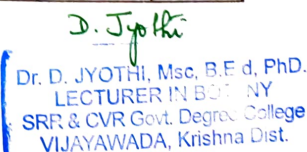 D. Jyothi
Dr. D. JYOTHI, Msc, B.E d, PhD.
LECTURER IN BOTANY
SRR & CVR Govt. Degree College
VIJAYAWADA, Krishna Dist.